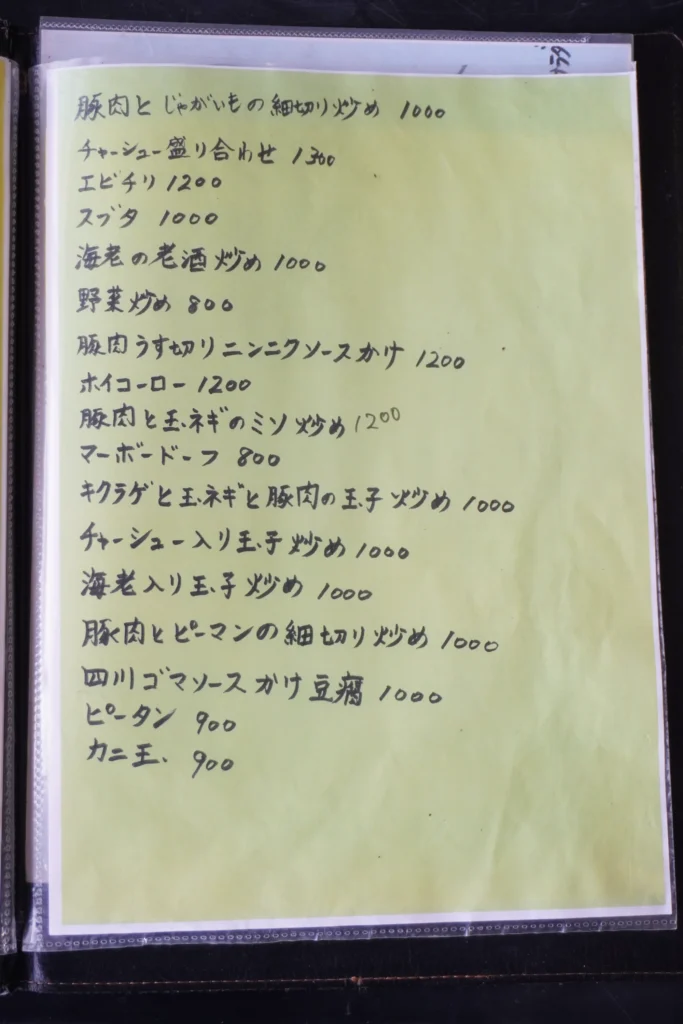 豚肉とじゃがいもの細切り炒め 1000
チャーシュー盛り合わせ 1300
エビチリ 1200
スブタ 1000
海老の老酒炒め 1000
野菜炒め 800
豚肉うす切りニンニクソースかけ 1200
ホイコーロー 1200
豚肉と玉ネギのミソ炒め 1200
マーボードーフ 800
キクラゲと玉ネギと豚肉の玉子炒め 1000
チャーシュー入り玉子炒め 1000
海老入り玉子炒め 1000
豚肉とピーマンの細切り炒め 1000
四川ゴマソースかけ豆腐 1000
ピータン 900
カニ玉 900